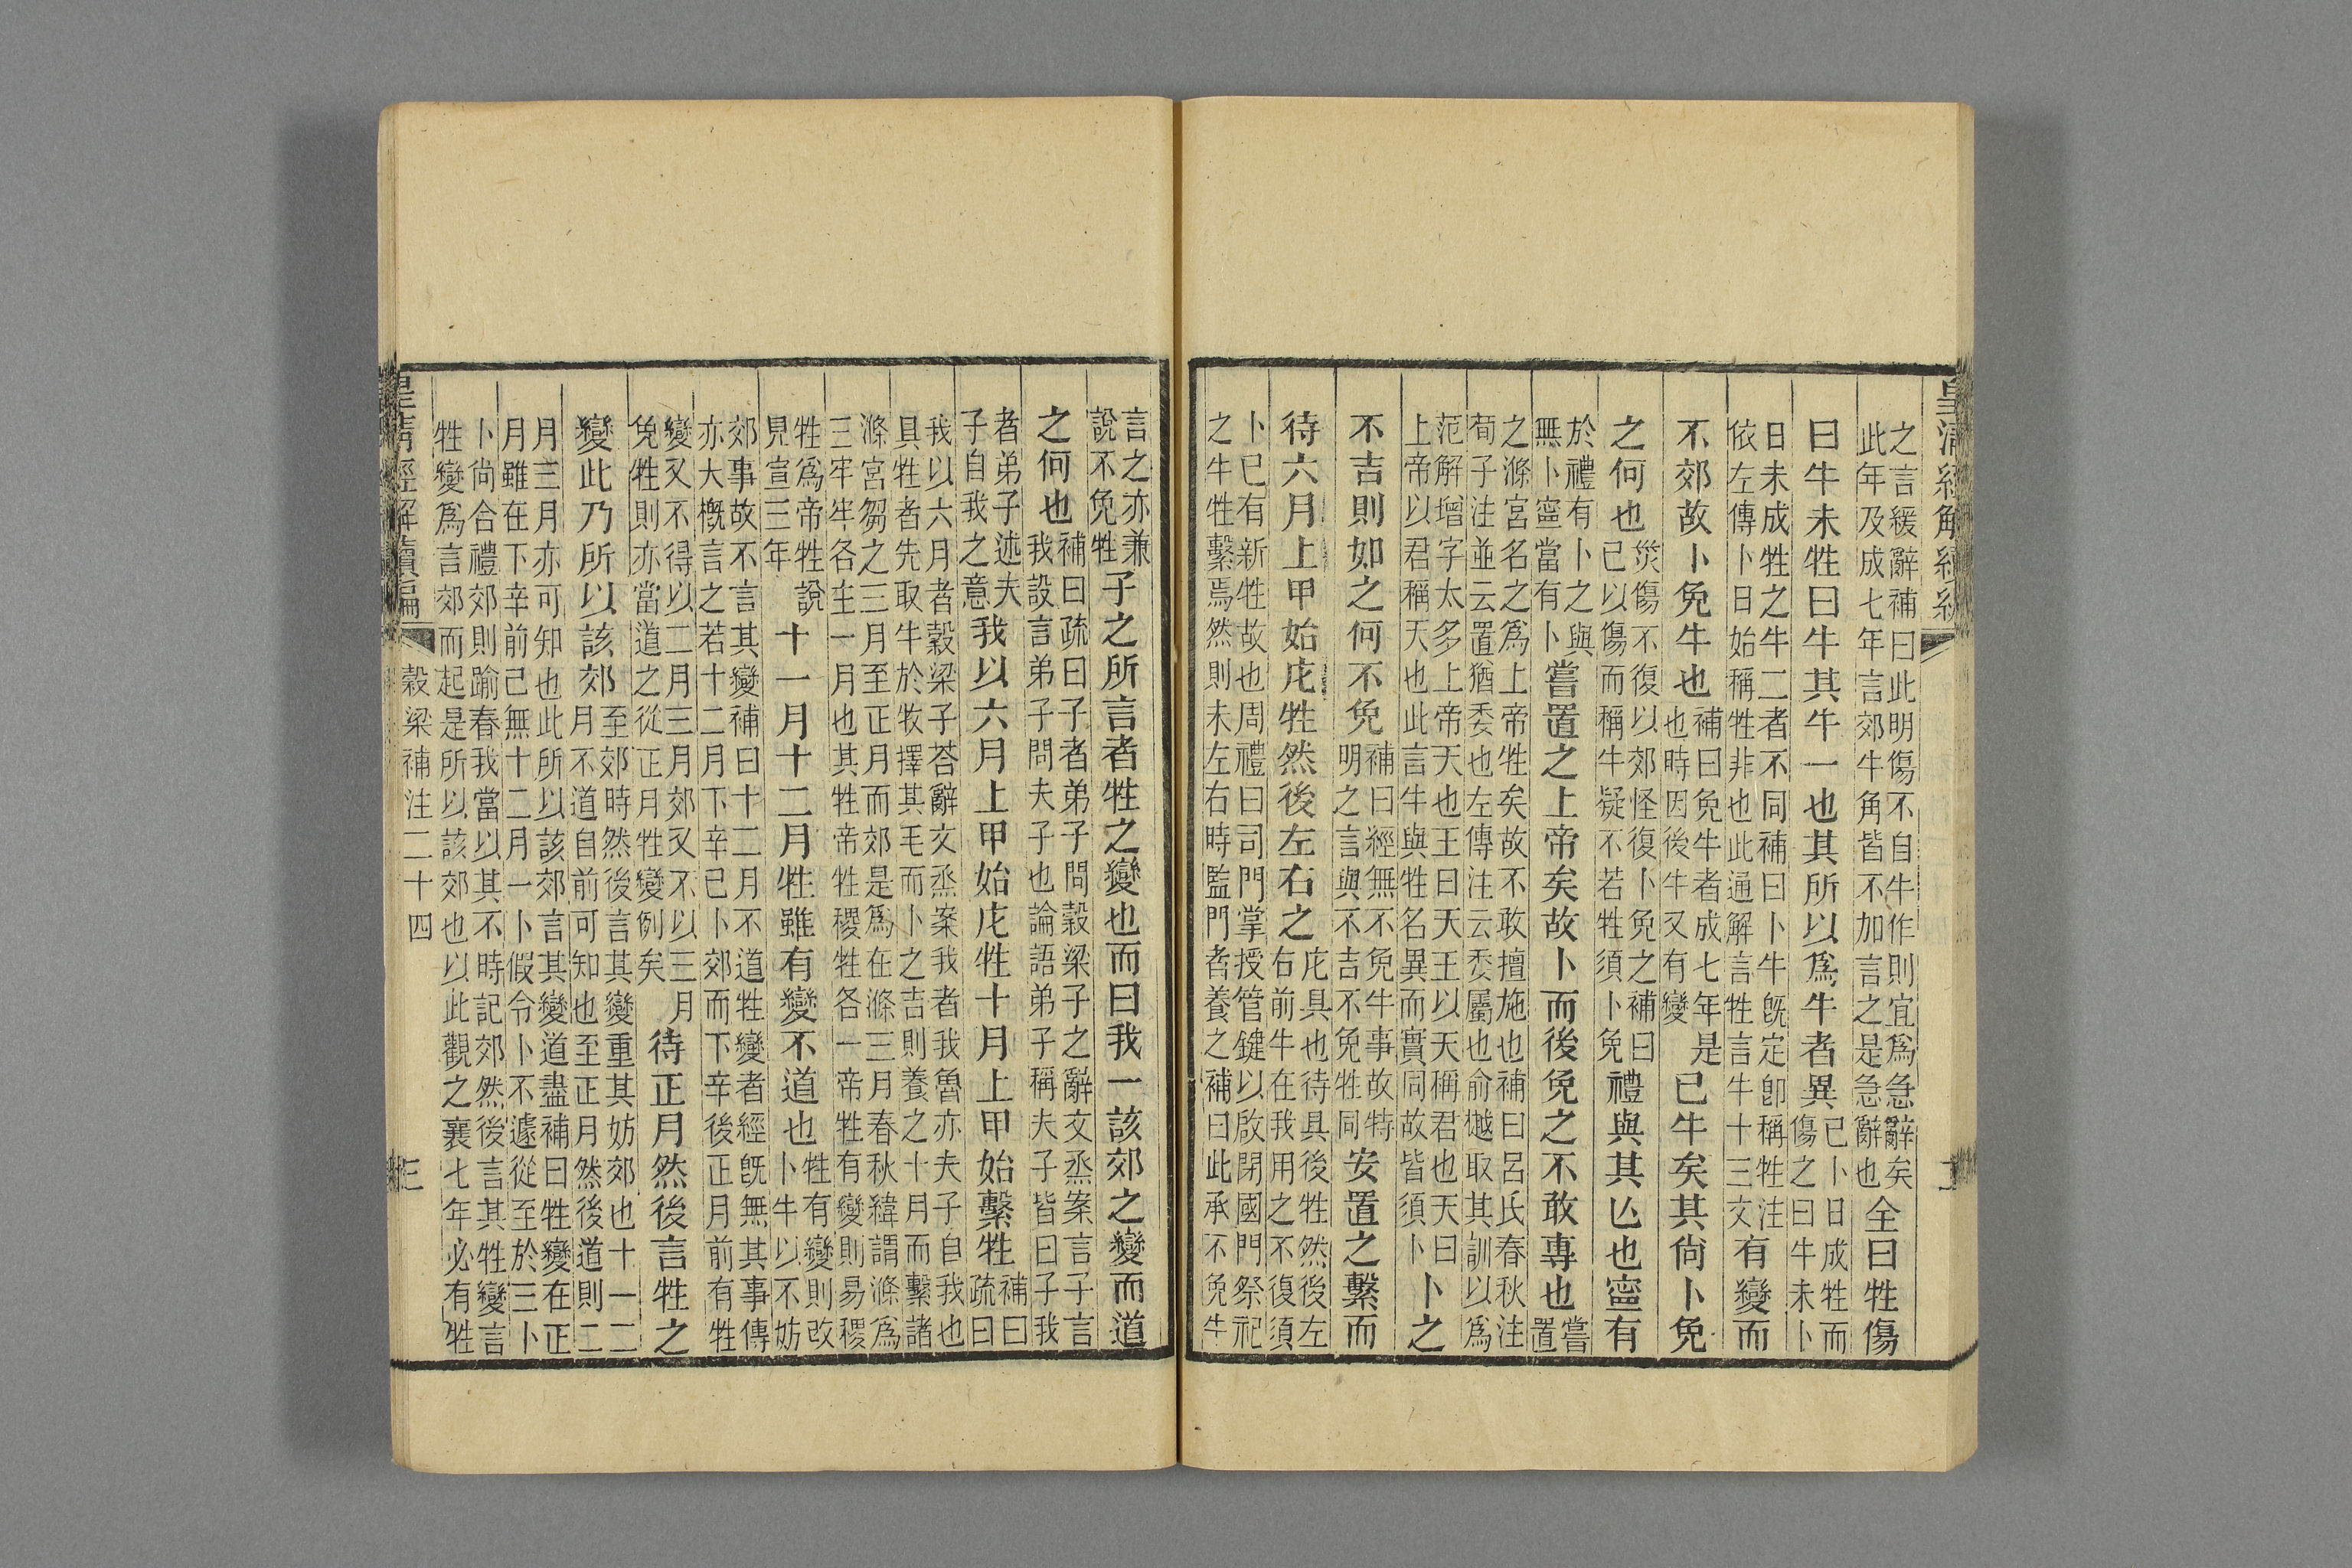 皇清經解續編
之言緩辭補曰此明傷不自牛作則宜爲急辭矣
此年及成七年言郊牛角皆不加言之是急辭也
全曰牲傷
曰牛未牲曰牛其牛一也其所以爲牛者異
已卜日成牲而
傷之曰牛未卜
日未成牲之牛二者不同補曰卜牛旣定卽稱牲注
依左傳卜日始稱牲非也此通解言牲言牛十三文
有變而
不郊故卜免牛也
補曰免牛者成七年是
也時因後牛又有變
已牛矣其尙卜免
之何也
災傷不復以郊怪復卜免之補曰
已以傷而稱牛疑不若牲須卜免
禮與其亾也寧有
於禮有卜之與
無卜寧當有卜
嘗置之上帝矣故卜而後免之不敢專也
嘗
置
之滌宮名之爲上帝牲矣故不敢擅施也補曰呂氏春秋注
荀子注並云置猶委也左傳注云委屬也俞樾取其訓以爲
范解增字太多上帝天也王曰天王以天稱君也天曰
上帝以君稱天也此言牛與牲名異而實同故皆須卜
卜之
不吉則如之何不免
補曰經無不免牛事故特
明之言與不吉不免牲同
安置之繫而
待六月上甲始庀牲然後左右之
庀具也待具後牲然後左
右前牛在我用之不復須
卜已有新牲故也周禮曰司門掌授管鍵以啟閉國門祭祀
之牛牲繫焉然則未左右時監門者養之補曰此承不免牛
言之亦兼
說不免牲
子之所言者牲之變也而曰我一該郊之變而道
之何也
補曰疏曰子者弟子問穀梁子之辭文烝案言子言
我設言弟子問夫子也論語弟子稱夫子皆曰子我
者弟子述夫
子自我之意
我以六月上甲始庀牲十月上甲始繫牲
補曰
疏曰
我以六月者穀梁子荅辭文烝案我者我魯亦夫子自我也
具牲者先取牛於牧擇其毛而卜之吉則養之十月而繫諸
滌宮芻之三月至正月而郊是爲在滌三月春秋緯謂滌爲
三牢牢各主一月也其牲帝牲稷牲各一帝牲有變則易稷
牲爲帝牲說
見宣三年
十一月十二月牲雖有變不道也
牲有變則改
卜牛以不妨
郊事故不言其變補曰十二月不道牲變者經旣無其事傳
亦大槪言之若十二月下辛已卜郊而下辛後正月前有牲
變又不得以二月三月郊又不以三月
免牲則亦當道之從正月牲變例矣
待正月然後言牲之
變此乃所以該郊
至郊時然後言其變重其妨郊也十一二
月不道自前可知也至正月然後道則二
月三月亦可知也此所以該郊言其變道盡補曰牲變在正
月雖在下辛前已無十二月一卜假令卜不遽從至於三卜
卜尙合禮郊則踰春我當以其不時記郊然後言其牲變言
牲變爲言郊而起是所以該郊也以此觀之襄七年必有牲
皇淸經解續編
穀梁補注二十四
三